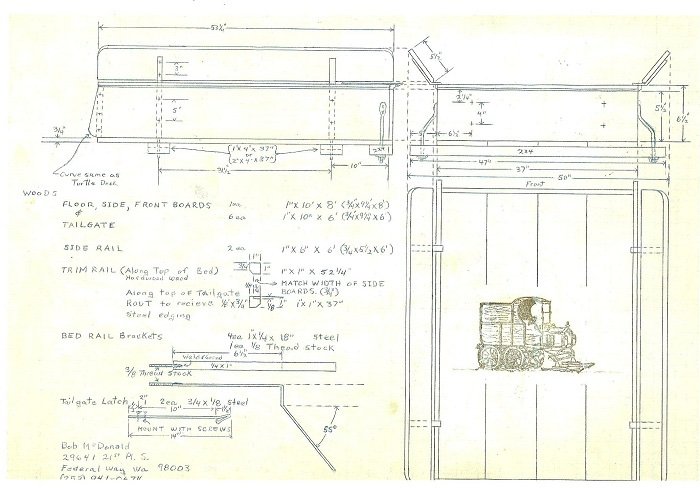 53¾"
5½"
3"
5'
2¼"
4"
5½
¾"
5"
6½"
1"X 4"X 37"
or
2"X 4"X 37"
2X4
2X4
10"
31½
47"
37"
50"
Curve same as
Turtle Deck
Front
WOODS
FLOOR, SIDE, FRONT BOARDS 1ea 1"X 10"X 8' (¾"X9¼"X8')
& 6ea 1"X 10"X 6' (¾"X9¼"X6')
TAILGATE
SIDE RAIL 2ea 1"X 6"X 6' (¾X5½X6')
TRIM RAIL (Along Top of Bed) 1"X 1"X 52¼"
Hardwood Wood
¾" 1" 1"
MATCH WIDTH OF SIDE
BOARDS. (¾")
Along top of Tailgate
ROUT to recieve ⅛"X¾" 1"X 1"X 37"
Steel edging
⅛ 1"
BED RAIL Brackets 4ea 1"X¼X 18" Steel
1ea ⅜ Thead Stock
6½"
Weld/Braced
¼X1"
⅜ Thread Stock
Tailgate Latch 2ea ¾X⅛ Steel
2"
10"
MOUNT WITH SCREWS
14"
55°
Bob McDonald
29641 21st A. S.
Federal Way Wa 98003